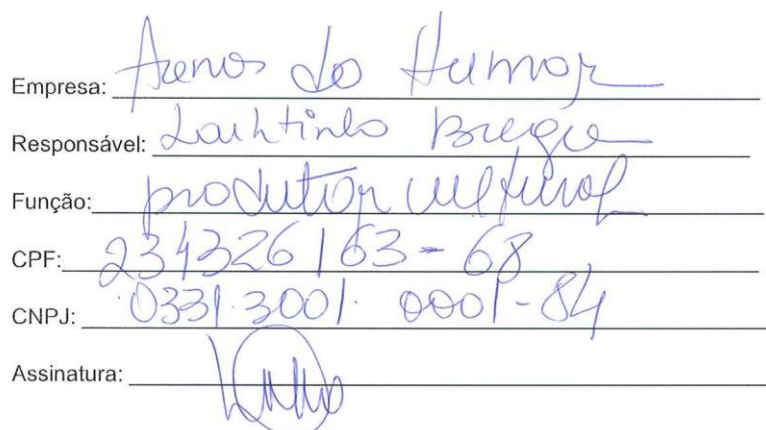 Empresa: Arenas do Humor
Responsável: Lailtinho Brega
Função: produtor cultural
CPF: 234326163-68
CNPJ: 0331.3001. 0001-84
Assinatura: